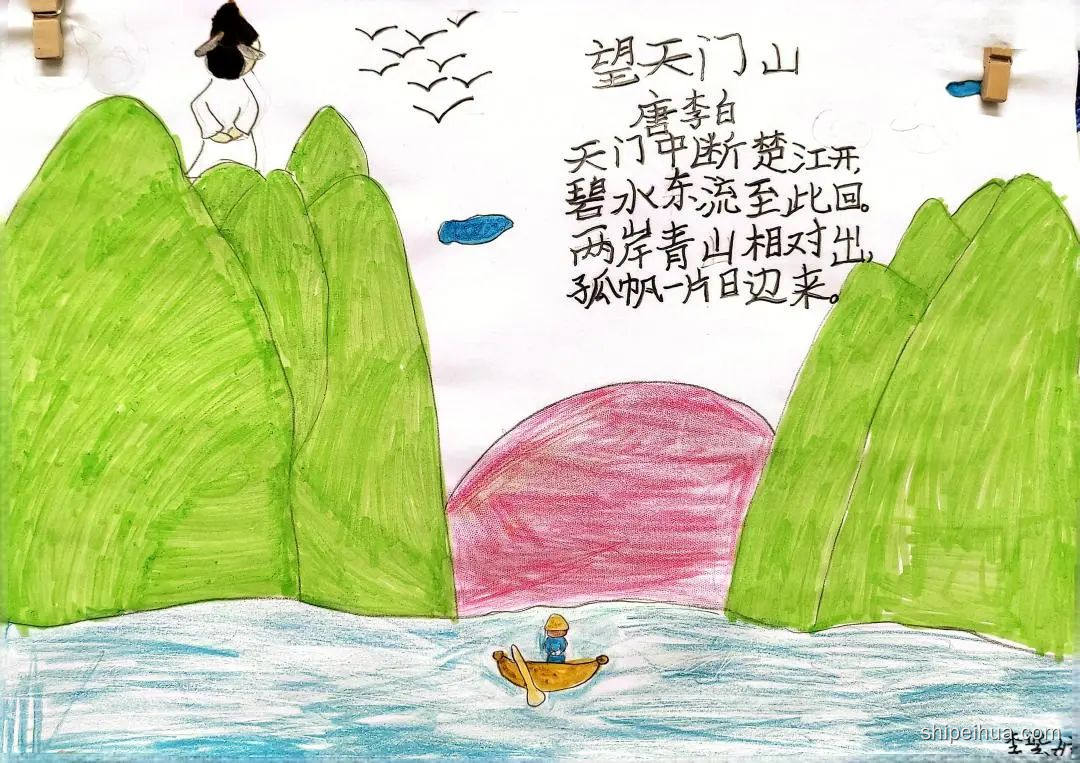 望天门山
唐李白
天门中断楚江开,
碧水东流至此回。
两岸青山相对出,
孤帆一片日边来。
shipeihua.com